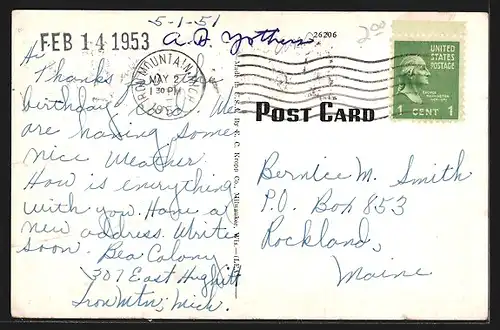 5-1-51
FEB 14 1953
A. B. Yothers
26206
Hi
Thanks for the
birthday We
are having some
nice weather.
How is everything
with you. Have a
new address. Write
soon. Bea Colony
307 East Hughitt
Iron Mtn, Mich.
IRON MOUNTAIN MICH
MAY 2
1 30 PM
Made in U.S.A. by E. C. Kropp Co., Milwaukee, Wis.
POST CARD
UNITED
STATES
POSTAGE
1 CENT 1
200
Bernice M. Smith
P.O. Box 853
Rockland,
Maine